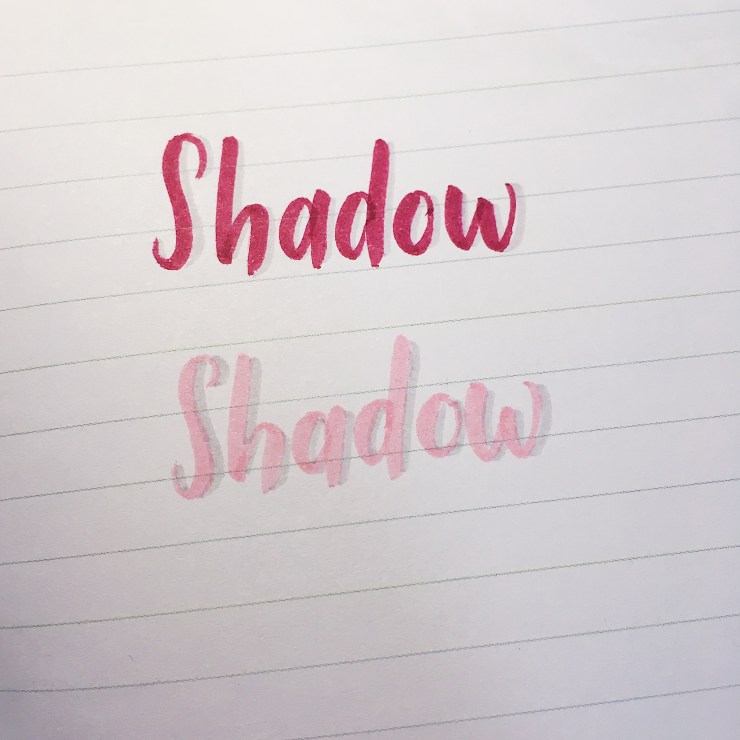 Shadow
Shadow